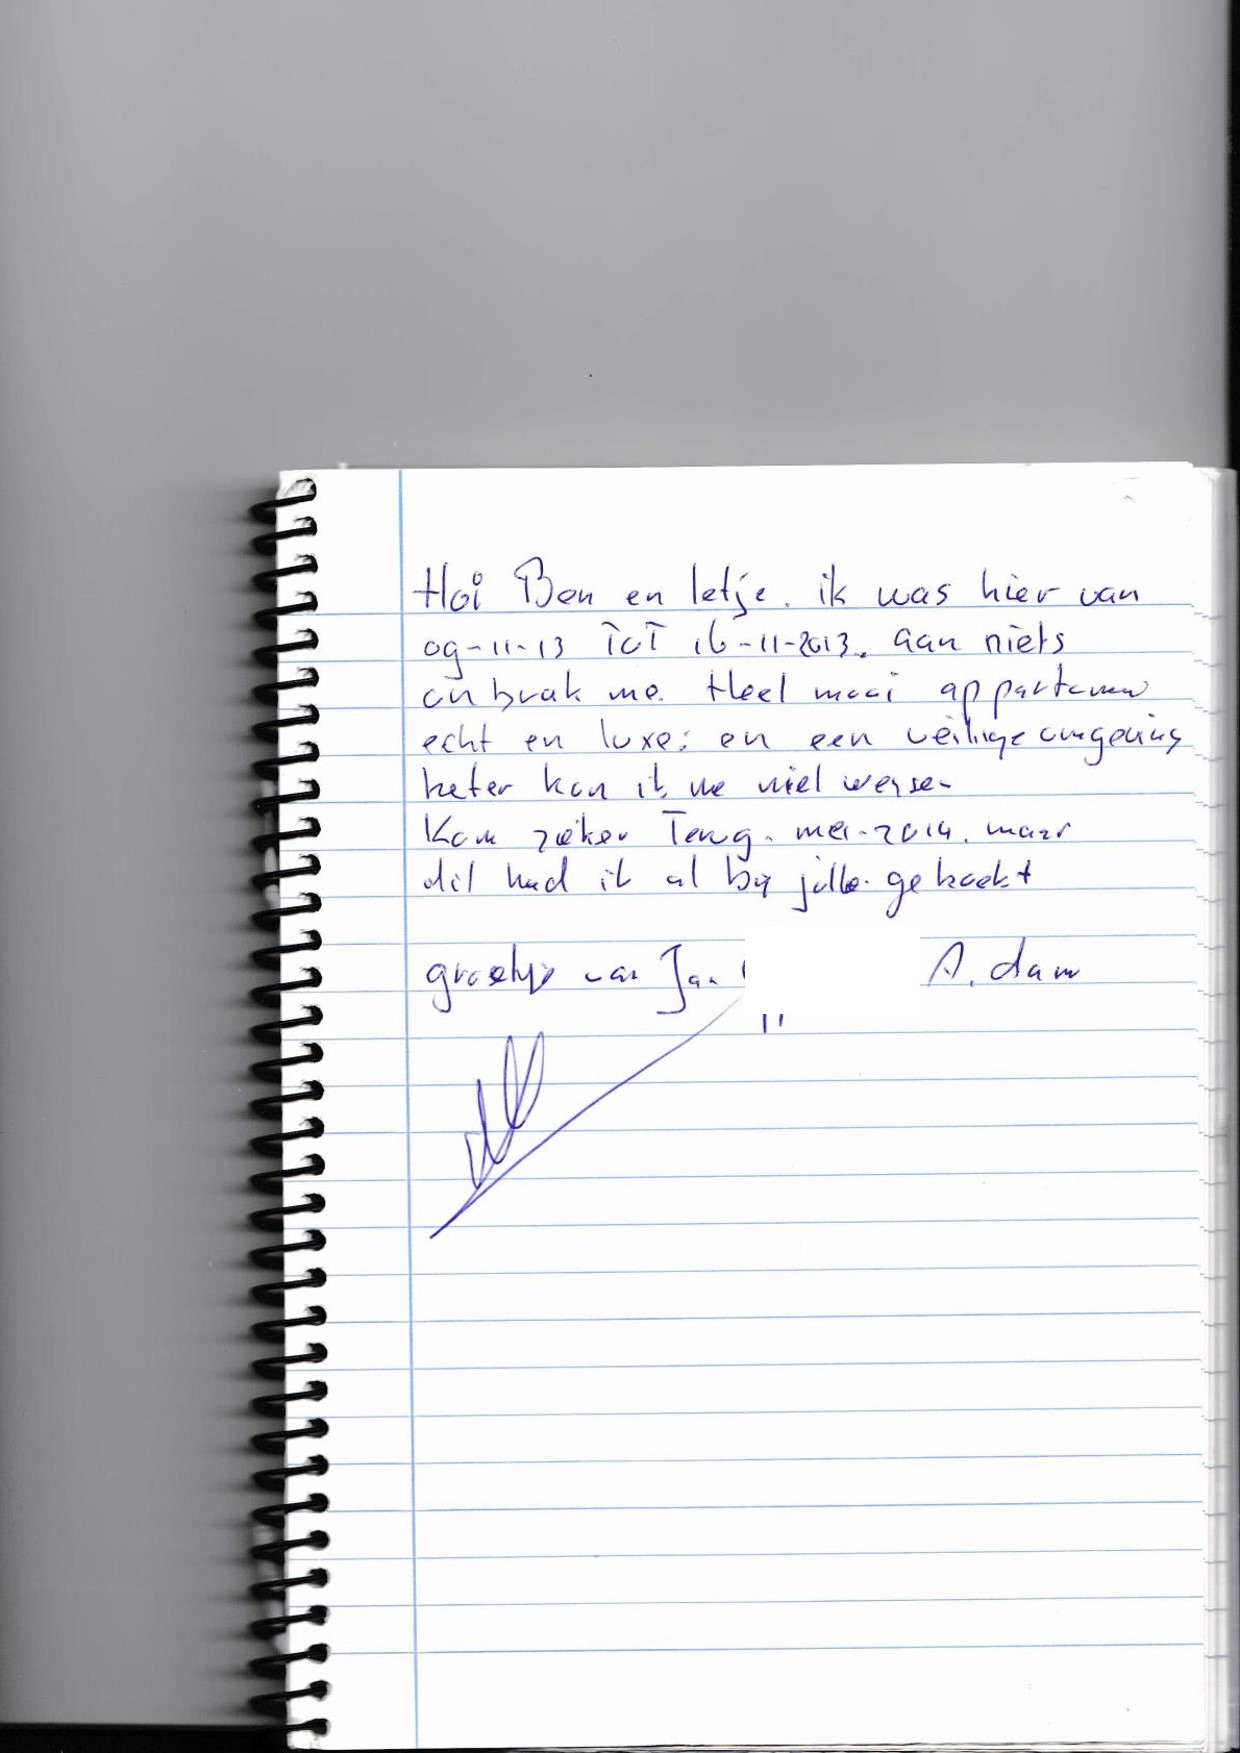 Hoi Ben en letje. ik was hier van
09-11-13 ToT 16-11-2013. aan niets
onbrak me. Heel mooi appartemen
echt en luxe: en een veilige omgeving
beter kon ik me niet wensen
Kom zeker Terug. mei-2014. maar
dit had ik al bij jullie geboekt
groetjes van Jan A.dam